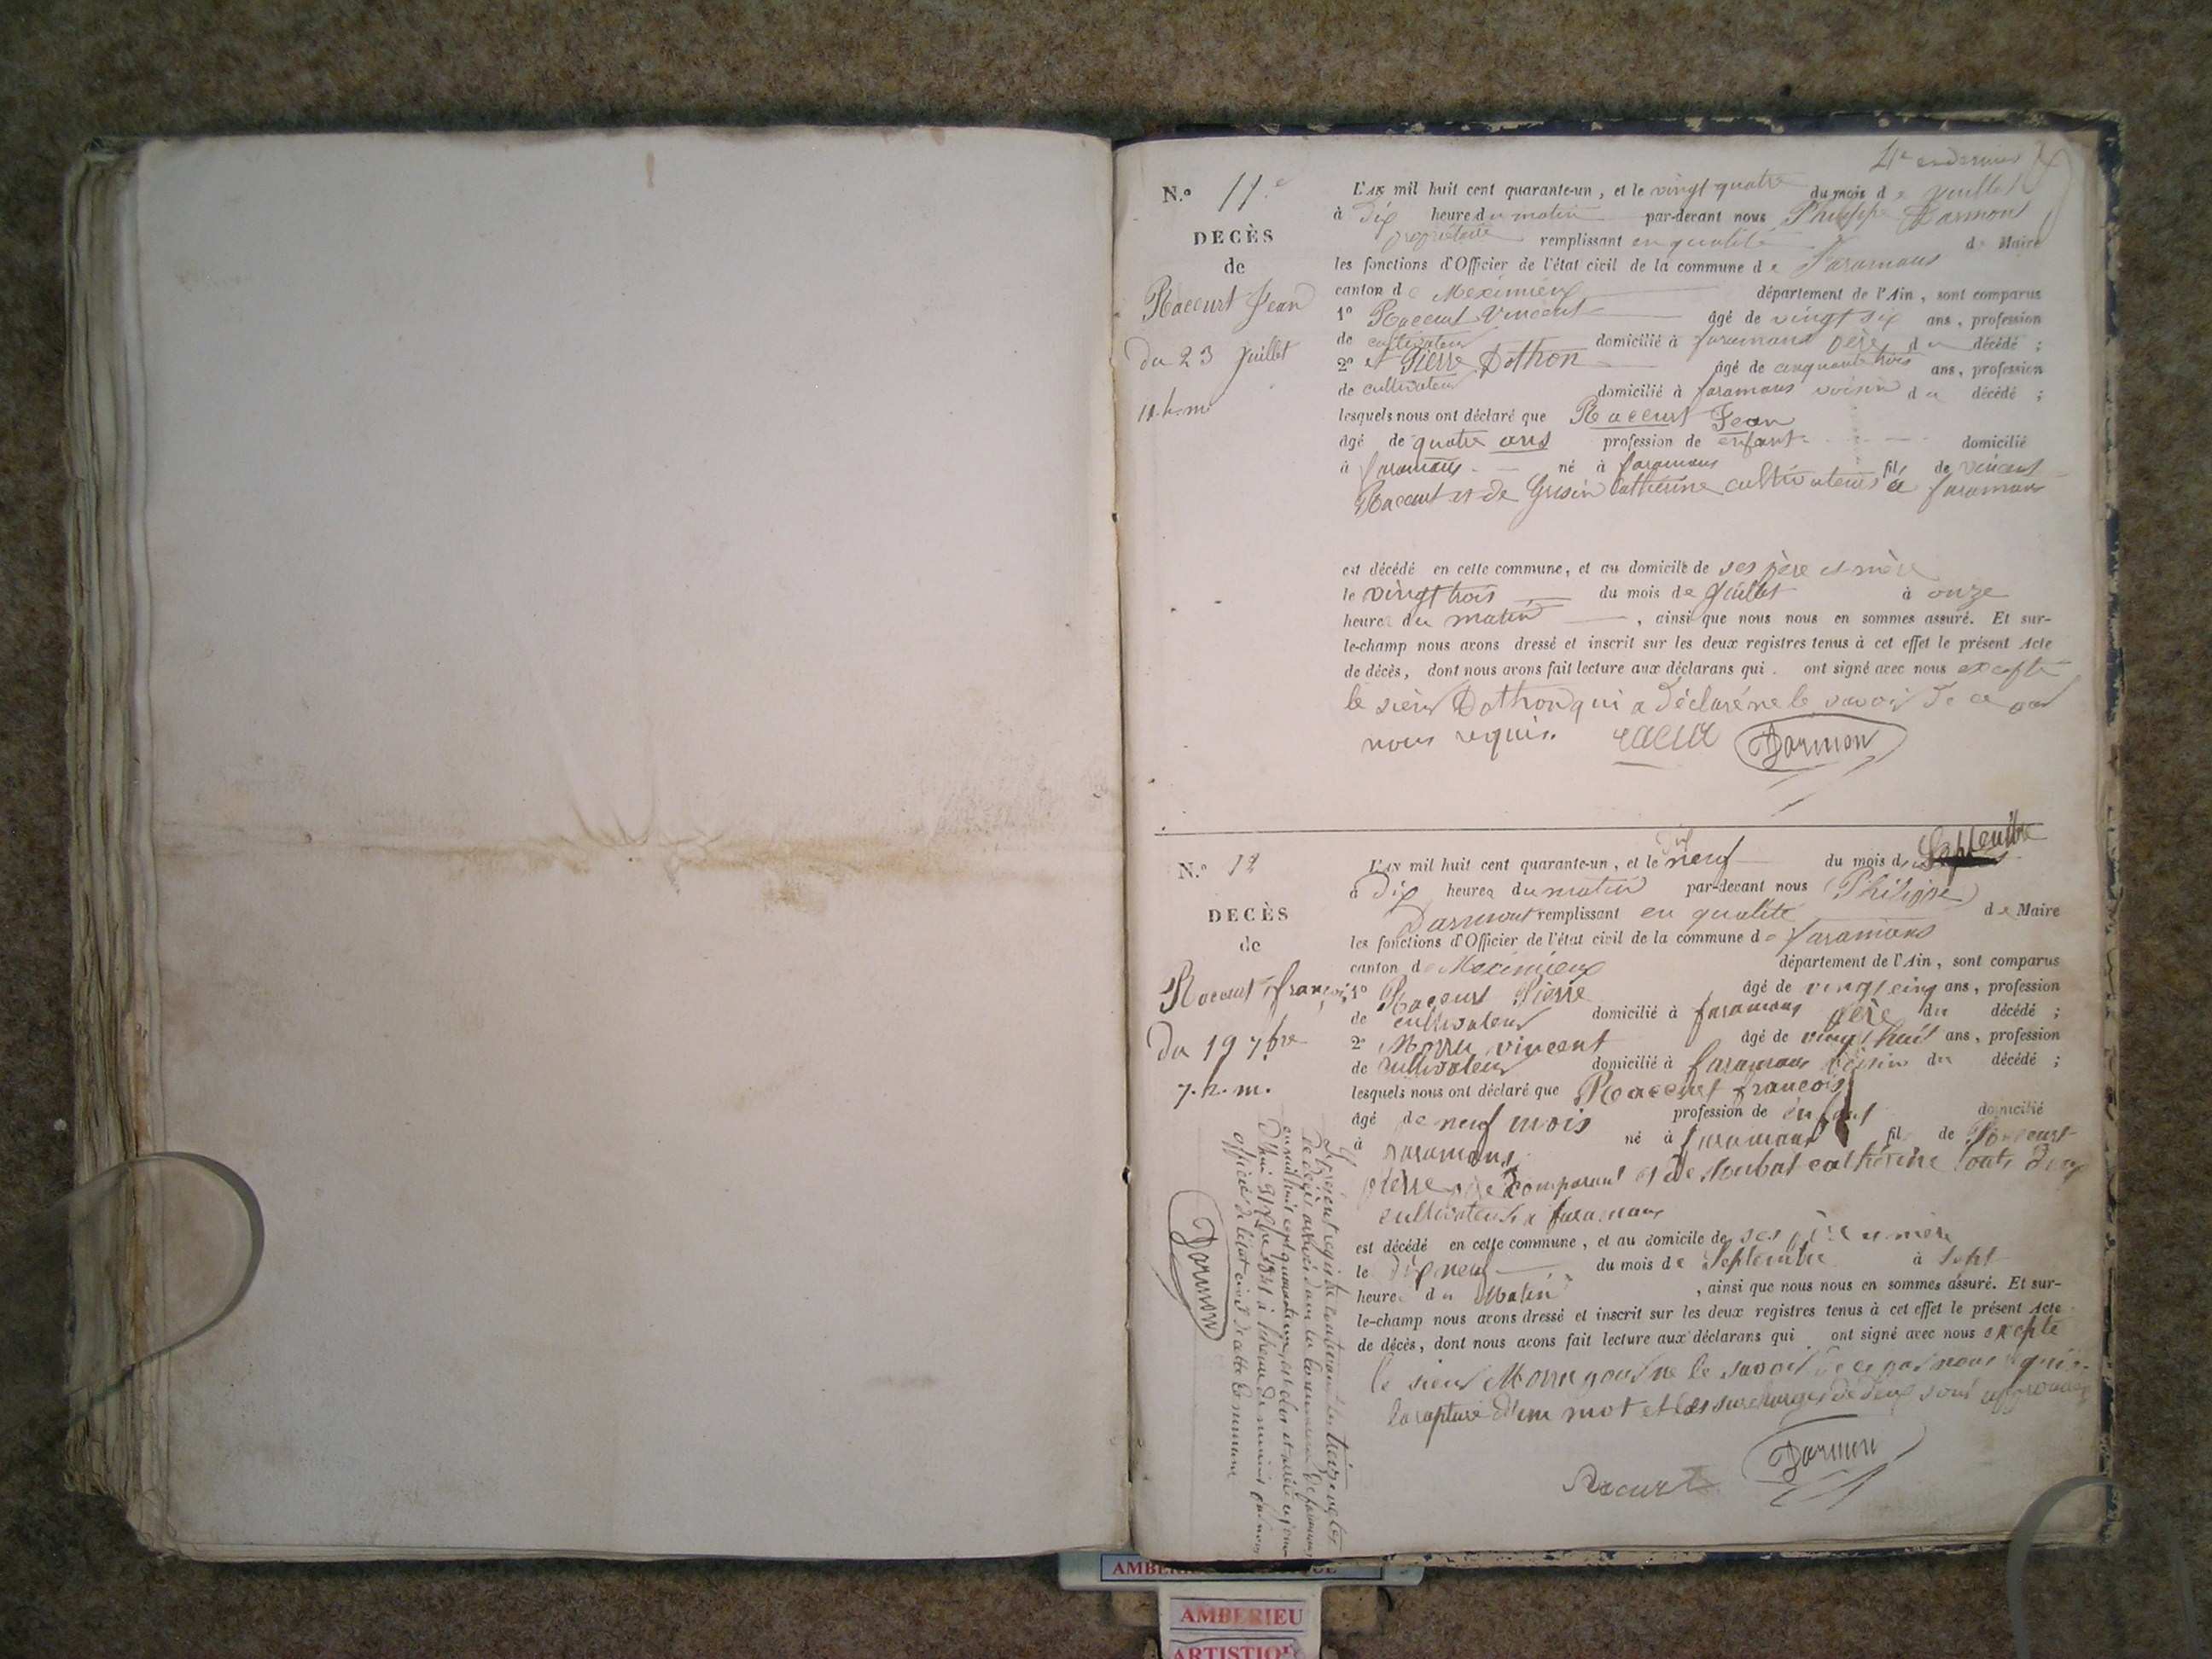 4e et dernier
N.o 11e
DECÈS
de
Raccurt Jean
du 23 Juillet
11.h.m
L'AN mil huit cent quarante-un, et le vingt quatre du mois de Juillet
à Dix heure du matin par-devant nous Philippe Darmont
propriétaire remplissant en qualité de Maire
les fonctions d'Officier de l'état civil de la commune de Faramans
canton de Meximieux département de l'Ain, sont comparus
1o Raccurt Vincent âgé de vingt six ans, profession
de cultivateur domicilié à faramans père du décédé;
2o et Pierre Dothon âgé de cinquante trois ans, profession
de cultivateur domicilié à faramans voisin du décédé;
lesquels nous ont déclaré que Raccurt Jean
âgé de quatre ans profession de enfant domicilié
à faramans né à faramans fils de vincent
Raccurt et de Grisin Catherine cultivateurs à faramans
est décédé en cette commune, et au domicile de ses père et mère
le vingt trois du mois de Juillet à onze
heure du matin, ainsi que nous nous en sommes assuré. Et sur-
le-champ nous avons dressé et inscrit sur les deux registres tenus à cet effet le présent Acte
de décès, dont nous avons fait lecture aux déclarans qui ont signé avec nous excepté
le sieur Dothon qui a Déclaré ne le savoir De ce par
nous requis. Darmon
N.o 12
DECÈS
de
Raccurt françois
Du 19 7bre
7.h.m.
L'AN mil huit cent quarante-un, et le Dix neuf du mois de Septembre
à Dix heures du matin par-devant nous Philippe
Darmont remplissant en qualité de Maire
les fonctions d'Officier de l'état civil de la commune de faramans
canton de Meximieux département de l'Ain, sont comparus
1o Raccurt Pierre âgé de vingt cinq ans, profession
de cultivateur domicilié à faramans père du décédé;
2o Morru vincent âgé de vingt huit ans, profession
de cultivateur domicilié à faramans voisin du décédé;
lesquels nous ont déclaré que Raccurt francois
âgé de neuf mois profession de enfant domicilié
à faramans né à faramans fils de Raccurt
pierre père comparant et de Moubat catherine touts deux
cultivateurs à faramans
est décédé en cette commune, et au domicile de ses père et mère
le Dix neuf du mois de Septembre à sept
heure du Matin, ainsi que nous nous en sommes assuré. Et sur-
le-champ nous avons dressé et inscrit sur les deux registres tenus à cet effet le présent Acte
de décès, dont nous avons fait lecture aux déclarans qui ont signé avec nous excepté
le sieur Morru pour ne le savoir de ce par nous requis.
la rapture d'un mot et les surcharges de deux sont approuvées
Darmon
Racurt
Le présent registre contenant
de décès arrivés dans la commune de faramans
en mil huit cent quarante un, est clos et arrêté
D'hui 31 Xbre 1841 à l'heure de minuit par nous
officier de l'état civil de cette Commune
Darmon
AMBERIEU
ARTISTIQUE